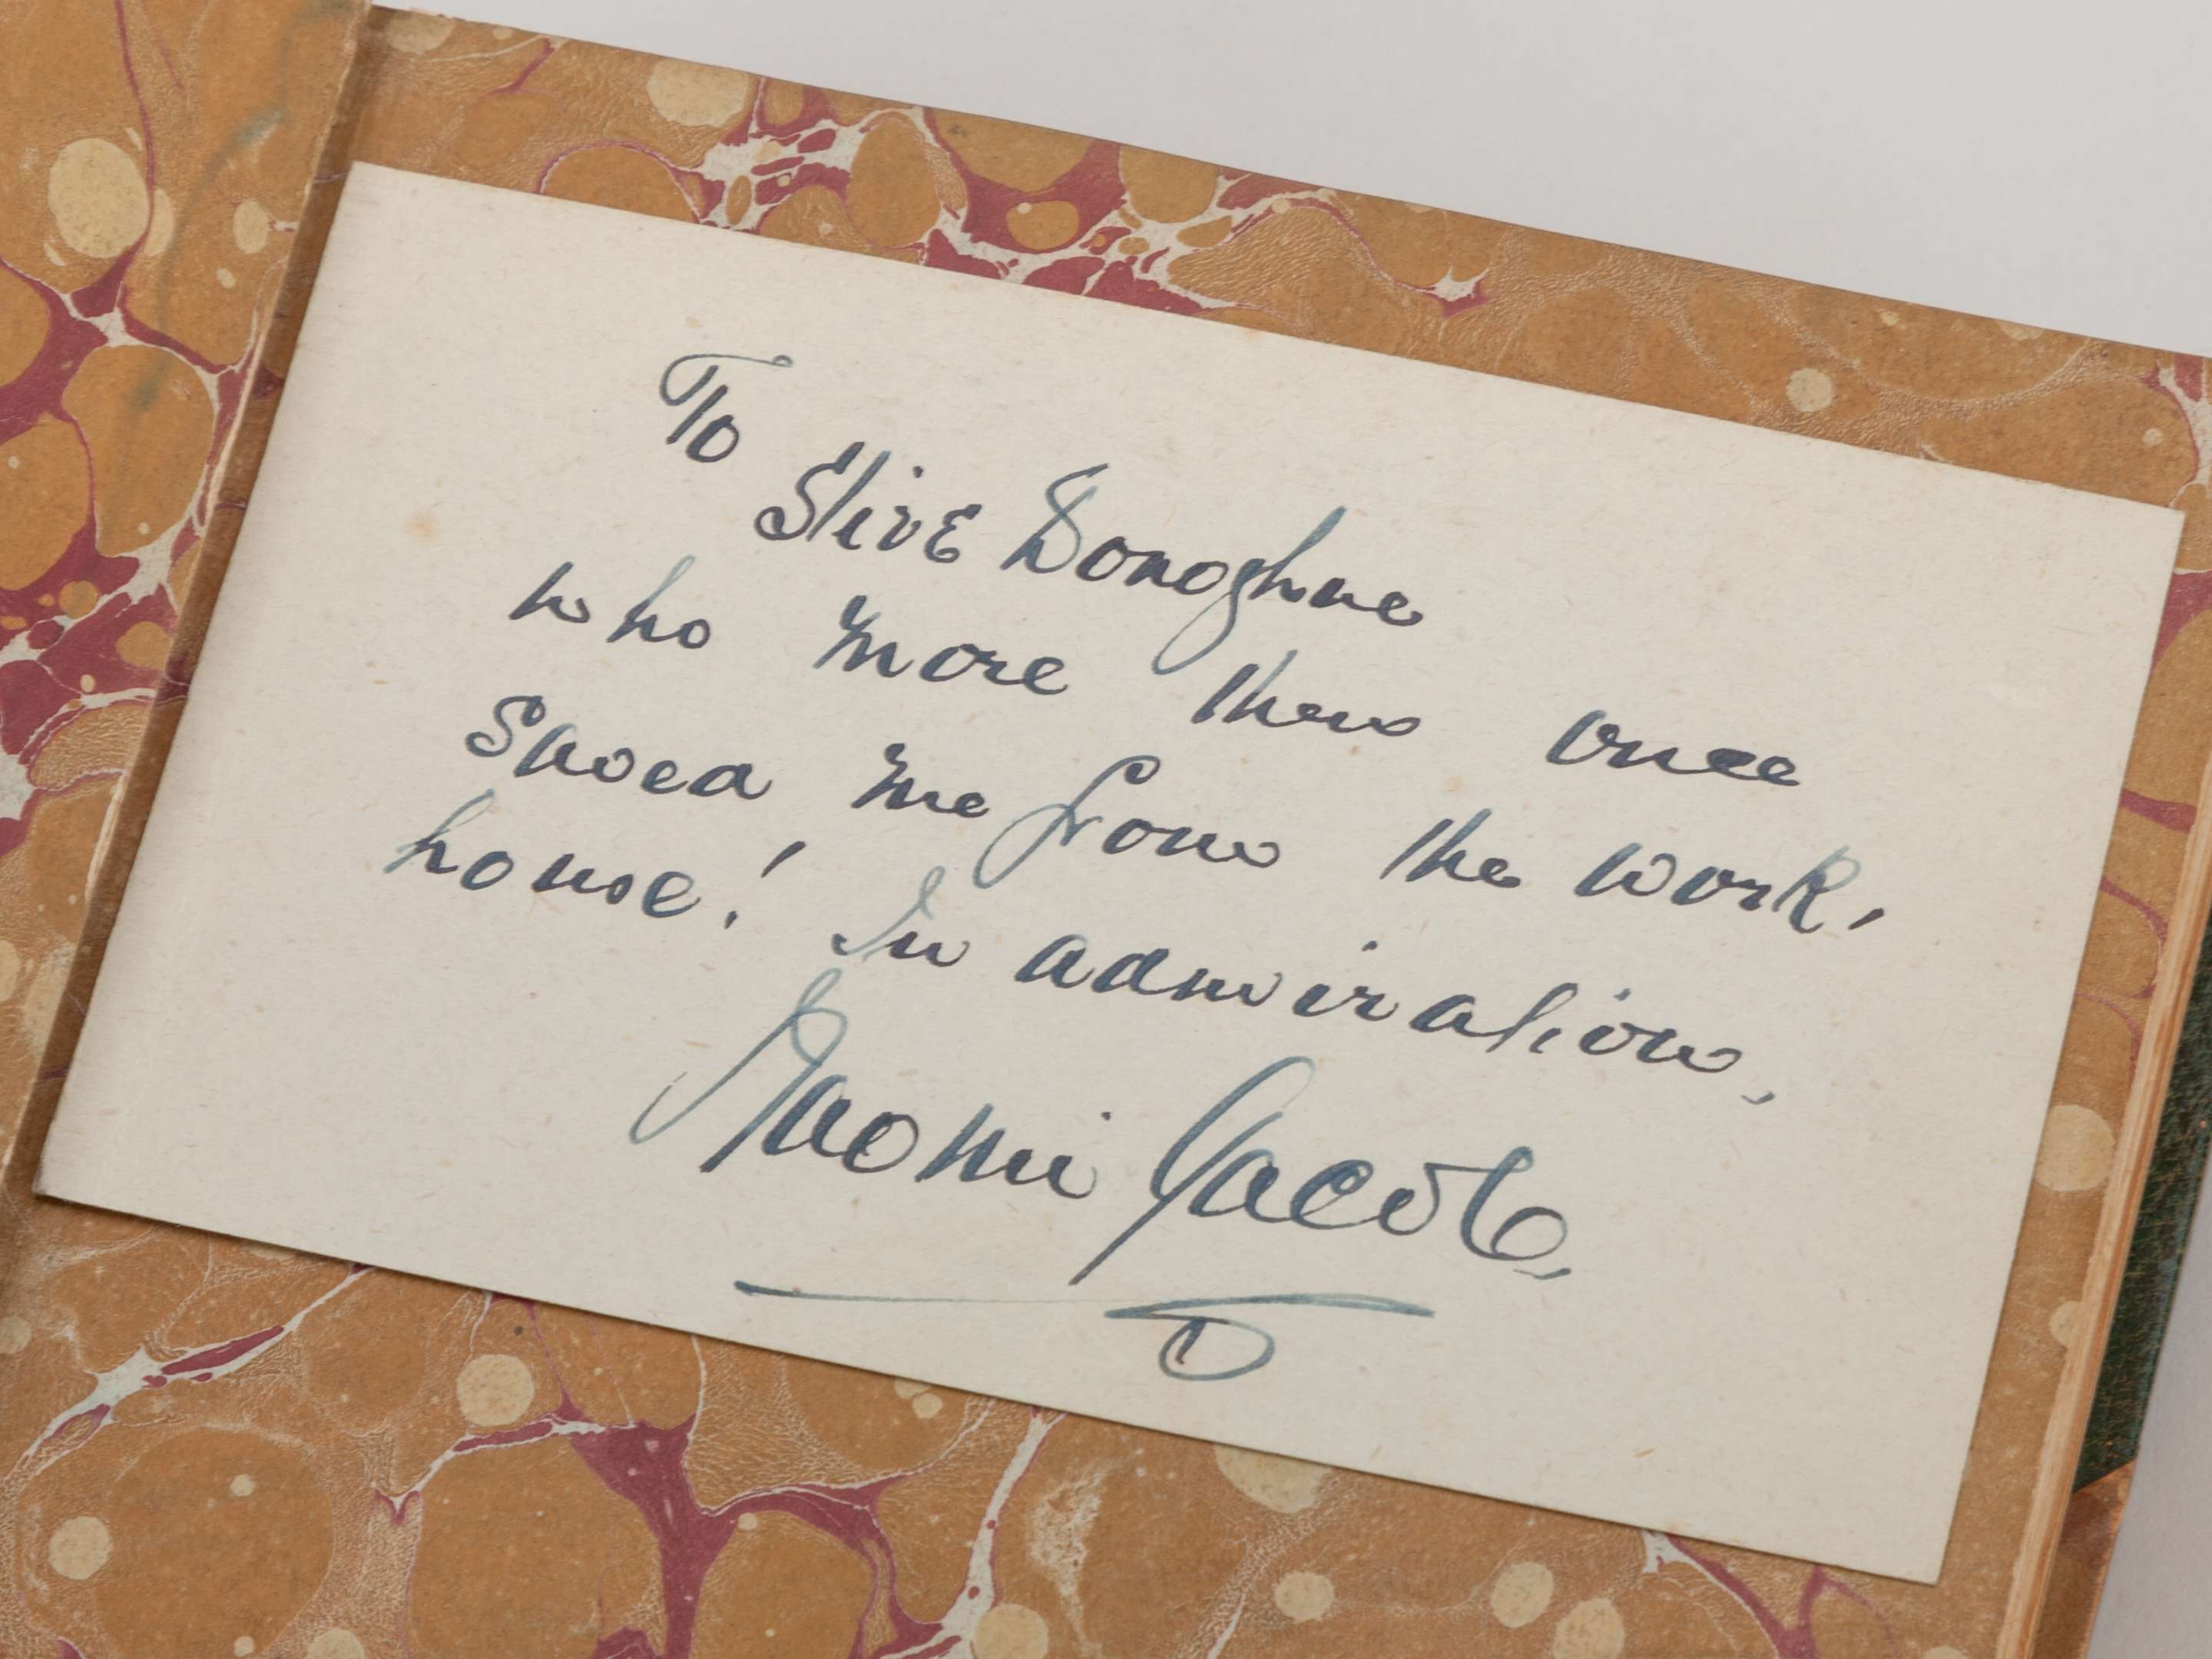 To
Steve Donoghue
who more than once
saved me from the work,
house! In admiration,
Naomi Jacob,